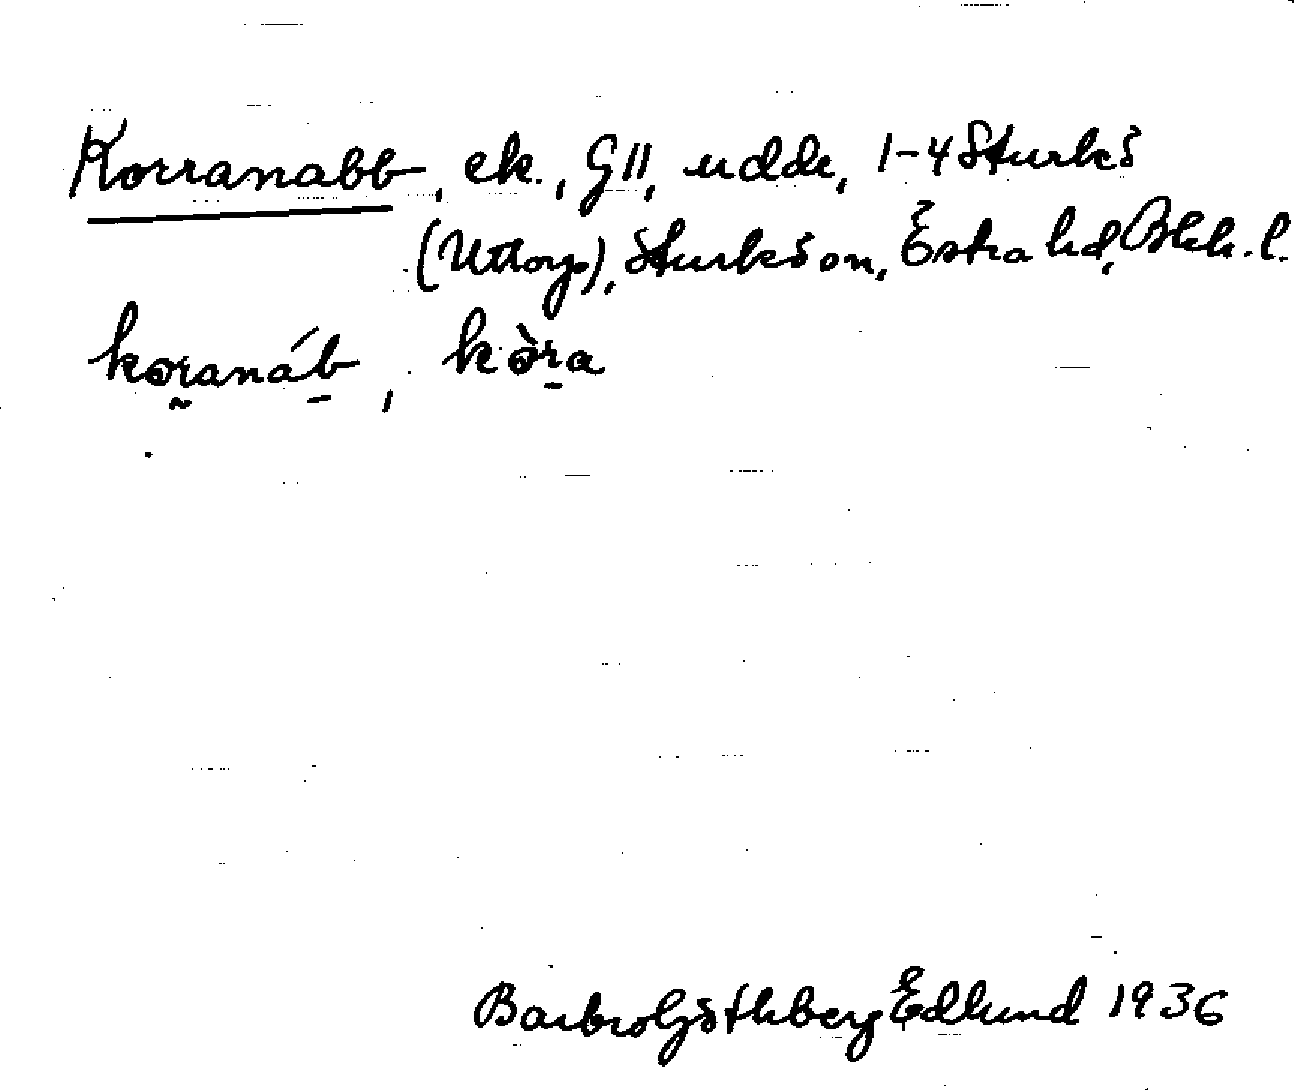 Korranabb, ek., G11, udde, 1-4 Sturkö
(Uttorp), Sturkö sn, Östra hd, Blek. l.
koranáb, kòra
Barbro Göthberg Edlund 1936